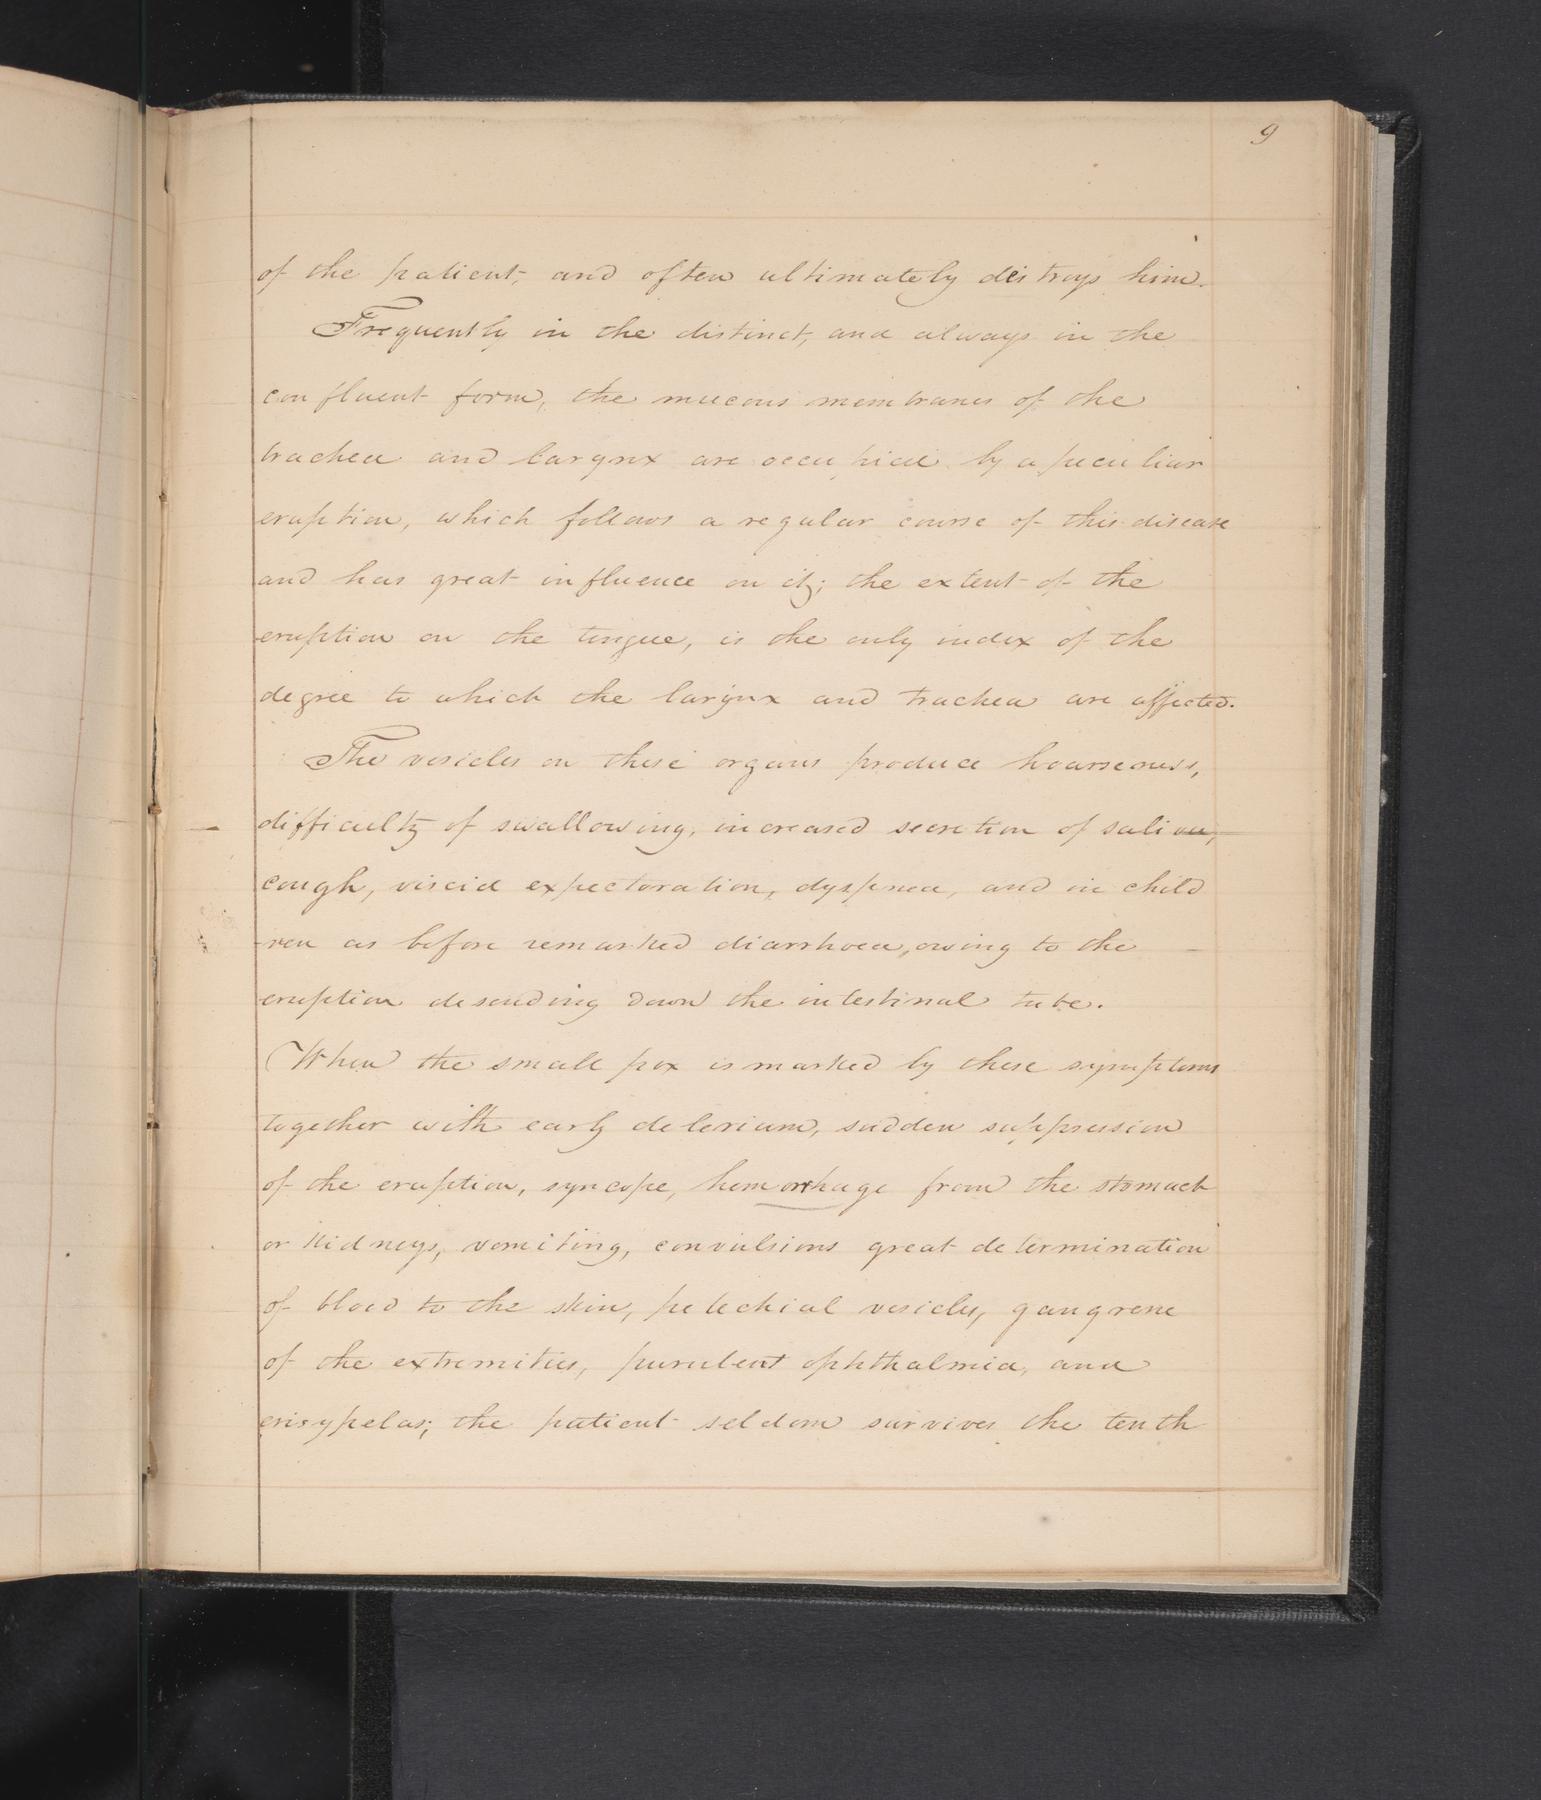 9
of the patient, and often ultimately destroys him.
Frequently in the distinct, and always in the
confluent form, the mucous membranes of the
trachea and larynx are occupied by a peculiar
eruption, which follows a regular course of this disease
and has great influence on it; the extent of the
eruption on the tongue, is the only index of the
degree to which the larynx and trachea are affected.
The vesicles on these organs produce hoarseness,
difficulty of swallowing, increased secretion of saliva,
cough, viscid expectoration, dyspnea, and in child
-ren as before remarked diarrhoea, owing to the
eruption desending down the intestinal tube.
When the small pox is marked by these symptoms
together with early delerium, sudden suppression
of the eruption, syncope, hemorrhage from the stomach
or kidneys, vomiting, convulsions great determination
of blood to the skin, petechial vesicles, gangrene
of the extremities, purulent ophthalmia, and
erisypelas; the patient seldom survives the tenth